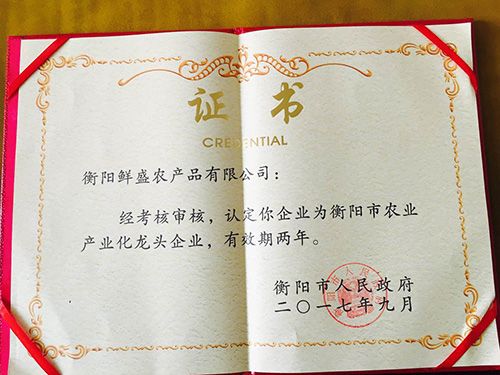 证书
CREDENTIAL
衡阳鲜盛农产品有限公司：
经考核审核，认定你企业为衡阳市农业
产业化龙头企业，有效期两年。
衡阳市人民政府
二〇一七年九月